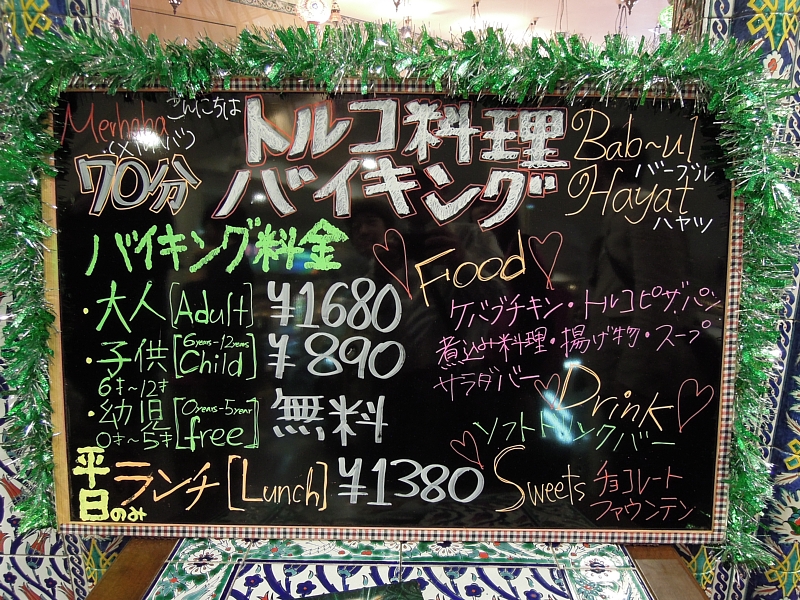 Merhaba こんにちは
(メルハバ)
トルコ料理
70分 バイキング
Bab~ul
バーブル
Hayat
ハヤツ
バイキング料金
・大人 [Adult] ¥1680
・子供 [6years-12years Child] ¥890
6才~12才
・幼児 [0years-5year free] 無料
0才~5才
平日のみ ランチ [Lunch] ¥1380
Food
ケバブチキン・トルコピザ・パン
煮込み料理・揚げ物・スープ
サラダバー
Drink
ソフトドリンクバー
Sweets チョコレート
ファウンテン